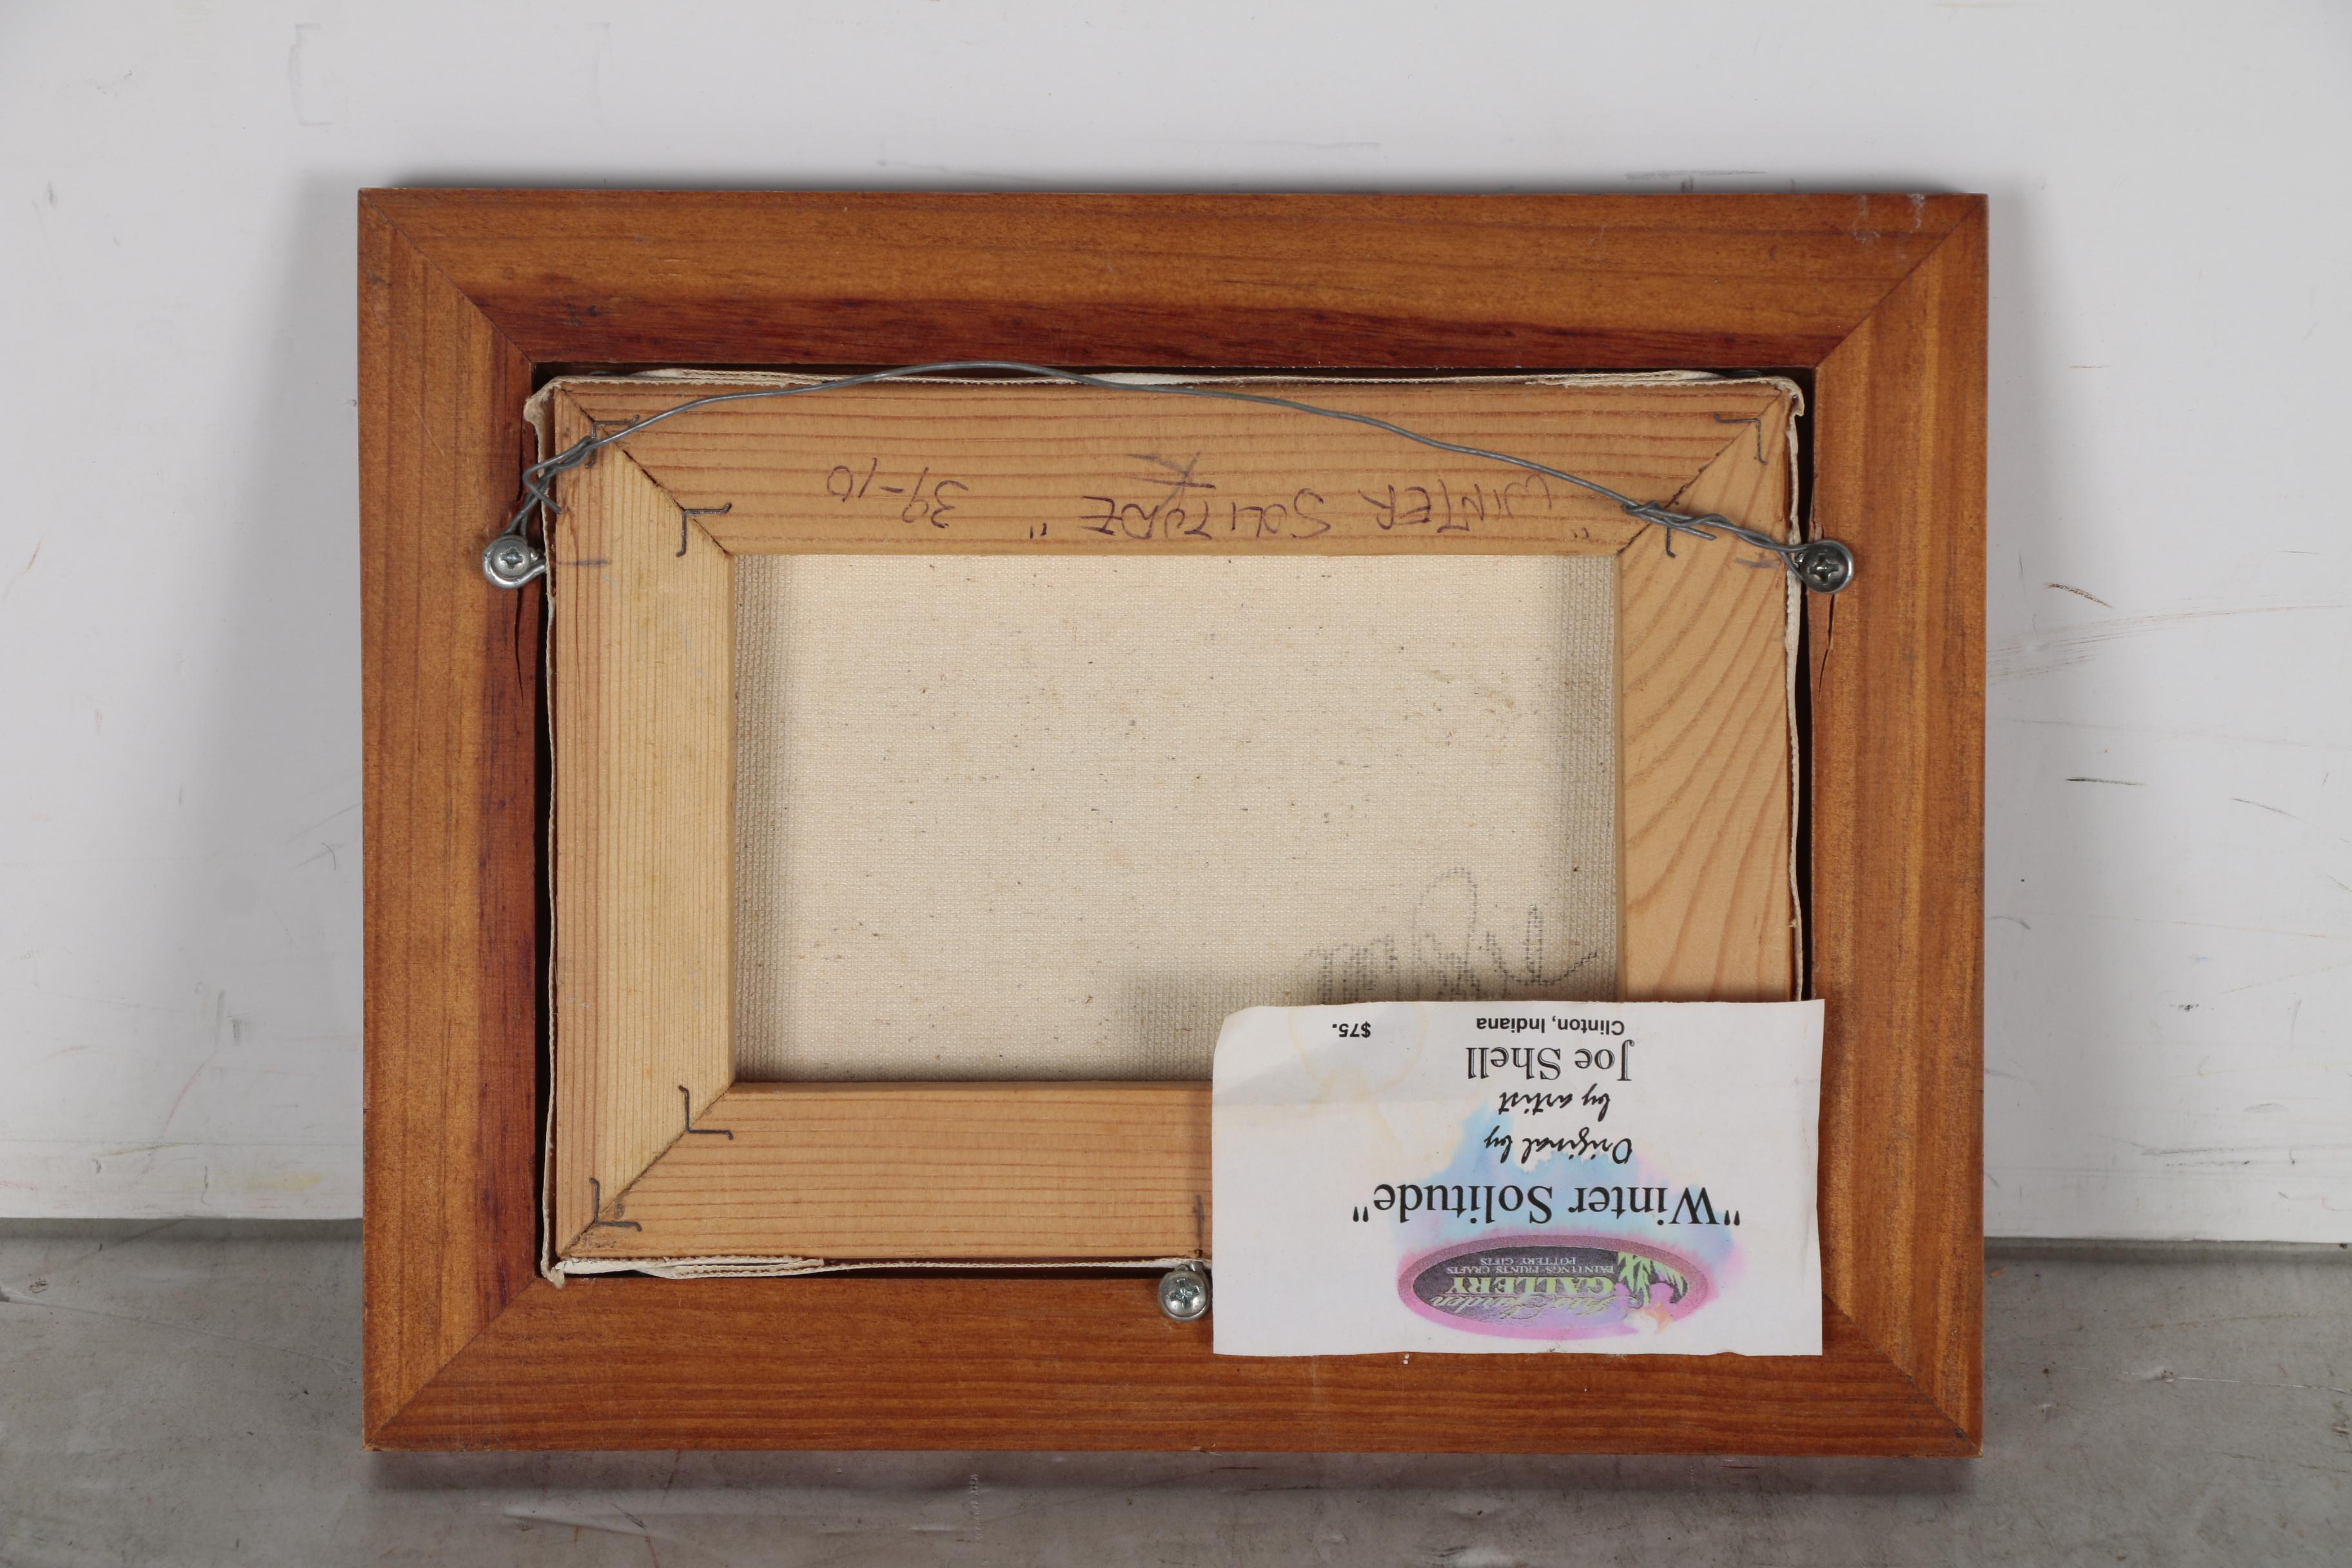 "WINTER SOLITUDE" 39-10
GALLERY
PAINTINGS·PRINTS·CRAFTS
POTTERY·GIFTS
"Winter Solitude"
Original by
by artist
Joe Shell
Clinton, Indiana $75.